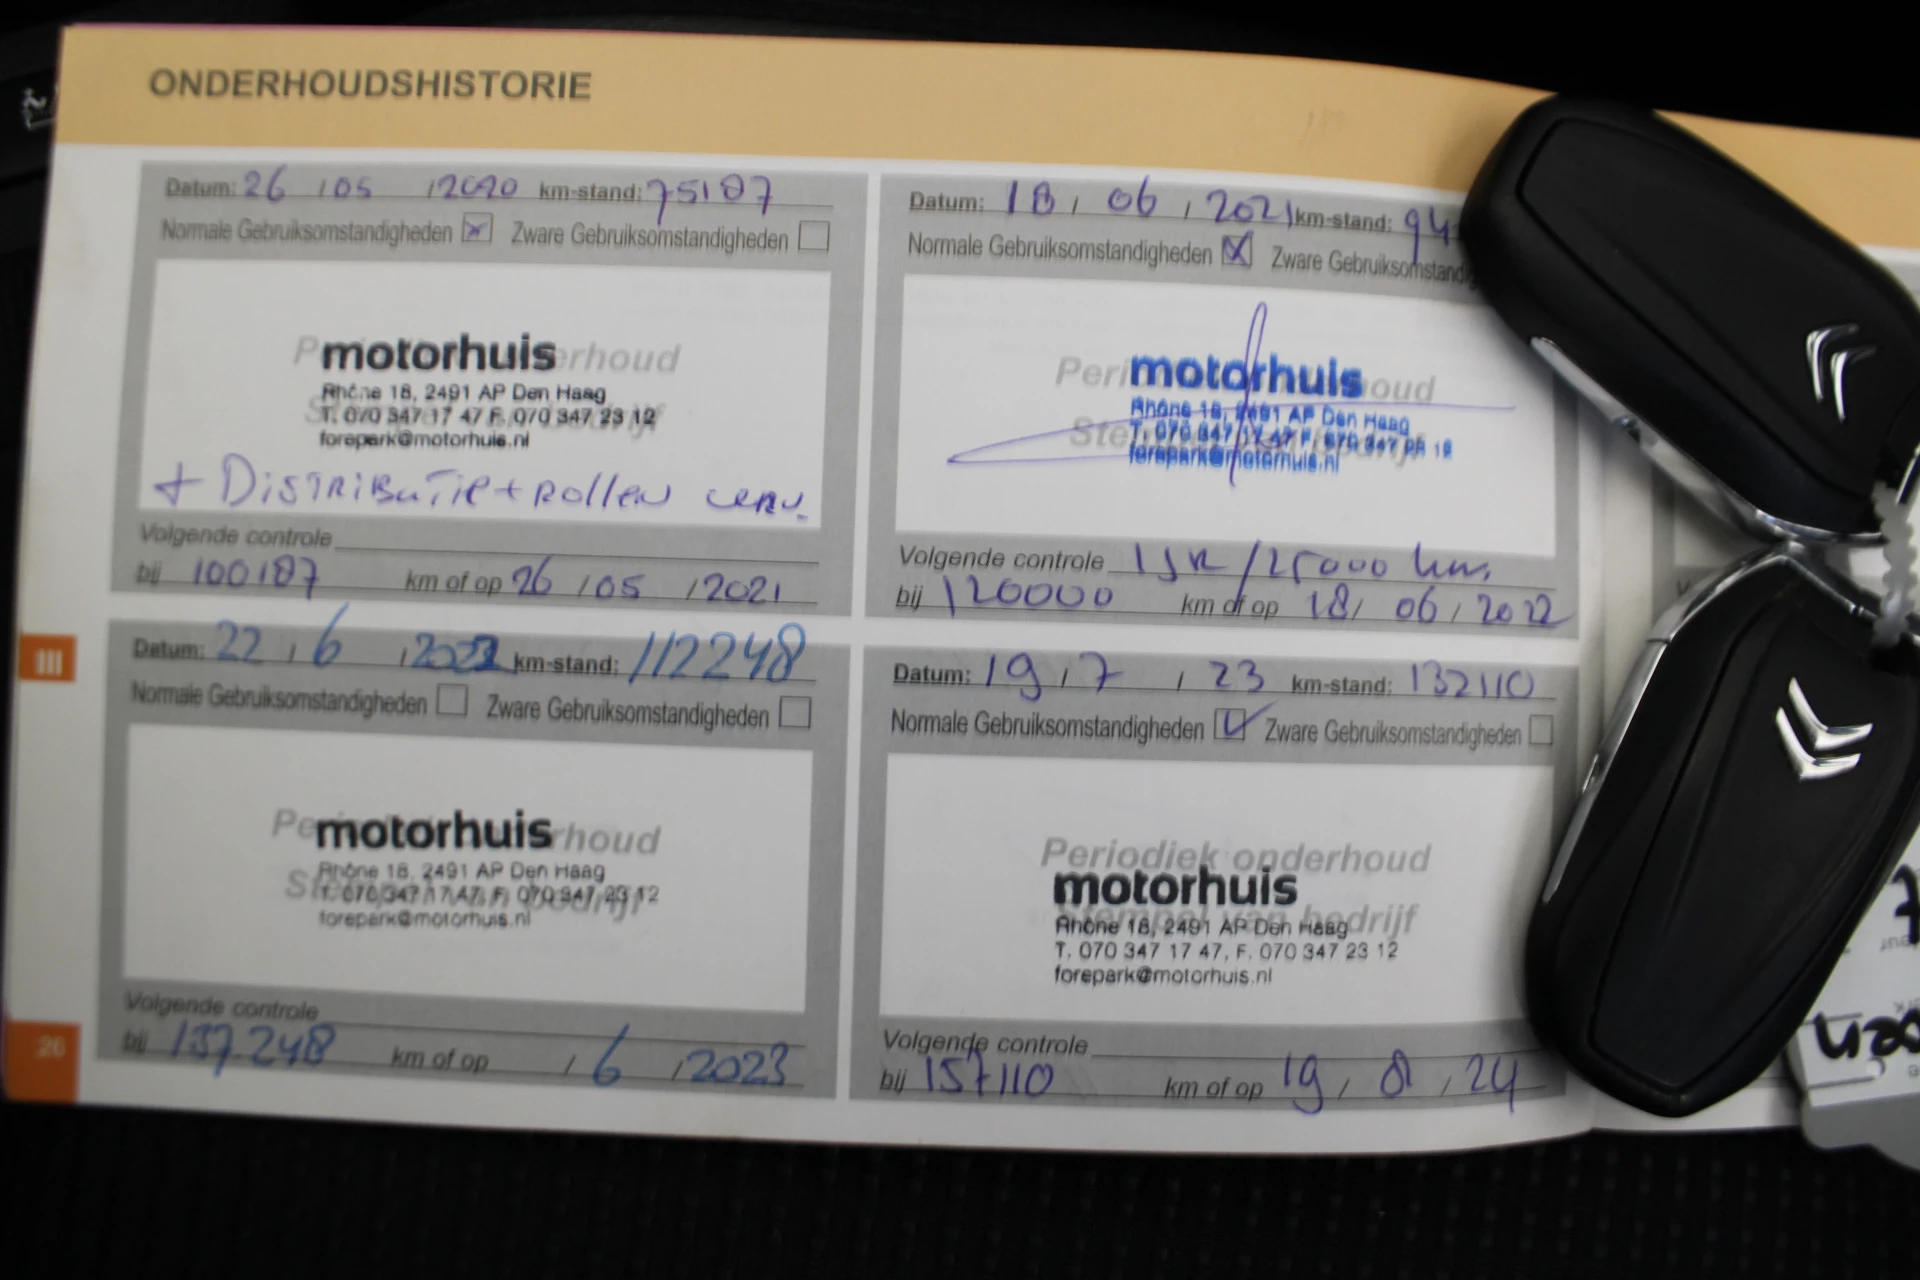 ONDERHOUDSHISTORIE
Datum: 26 / 05 / 2020 km-stand: 75187
Normale Gebruiksomstandigheden Zware Gebruiksomstandigheden
motorhuis
Rhône 18, 2491 AP Den Haag
T. 070 347 17 47 F. 070 347 23 12
forepark@motorhuis.nl
+ Distributie + Rollen verv.
Volgende controle
bij 100187 km of op 26 / 05 / 2021
Datum: 18 / 06 / 2021 km-stand: 94
Normale Gebruiksomstandigheden Zware Gebruiksomstandig
Periodiek onderhoud
motorhuis
Rhône 18, 2491 AP Den Haag
T. 070 347 17 47 F. 070 347 23 12
forepark@motorhuis.nl
Volgende controle 1 JR / 25000 km.
bij 120000 km of op 18 / 06 / 2022
III
Datum: 22 / 6 / 2022 km-stand: 112248
Normale Gebruiksomstandigheden Zware Gebruiksomstandigheden
motorhuis
Rhône 18, 2491 AP Den Haag
T. 070 347 17 47, F. 070 347 23 12
forepark@motorhuis.nl
Volgende controle
bij 137.248 km of op / 6 / 2023
Datum: 19 / 7 / 23 km-stand: 132110
Normale Gebruiksomstandigheden Zware Gebruiksomstandigheden
Periodiek onderhoud
motorhuis
Stempel van bedrijf
Rhône 18, 2491 AP Den Haag
T. 070 347 17 47, F. 070 347 23 12
forepark@motorhuis.nl
Volgende controle
bij 157110 km of op 19 / 8 / 24
26